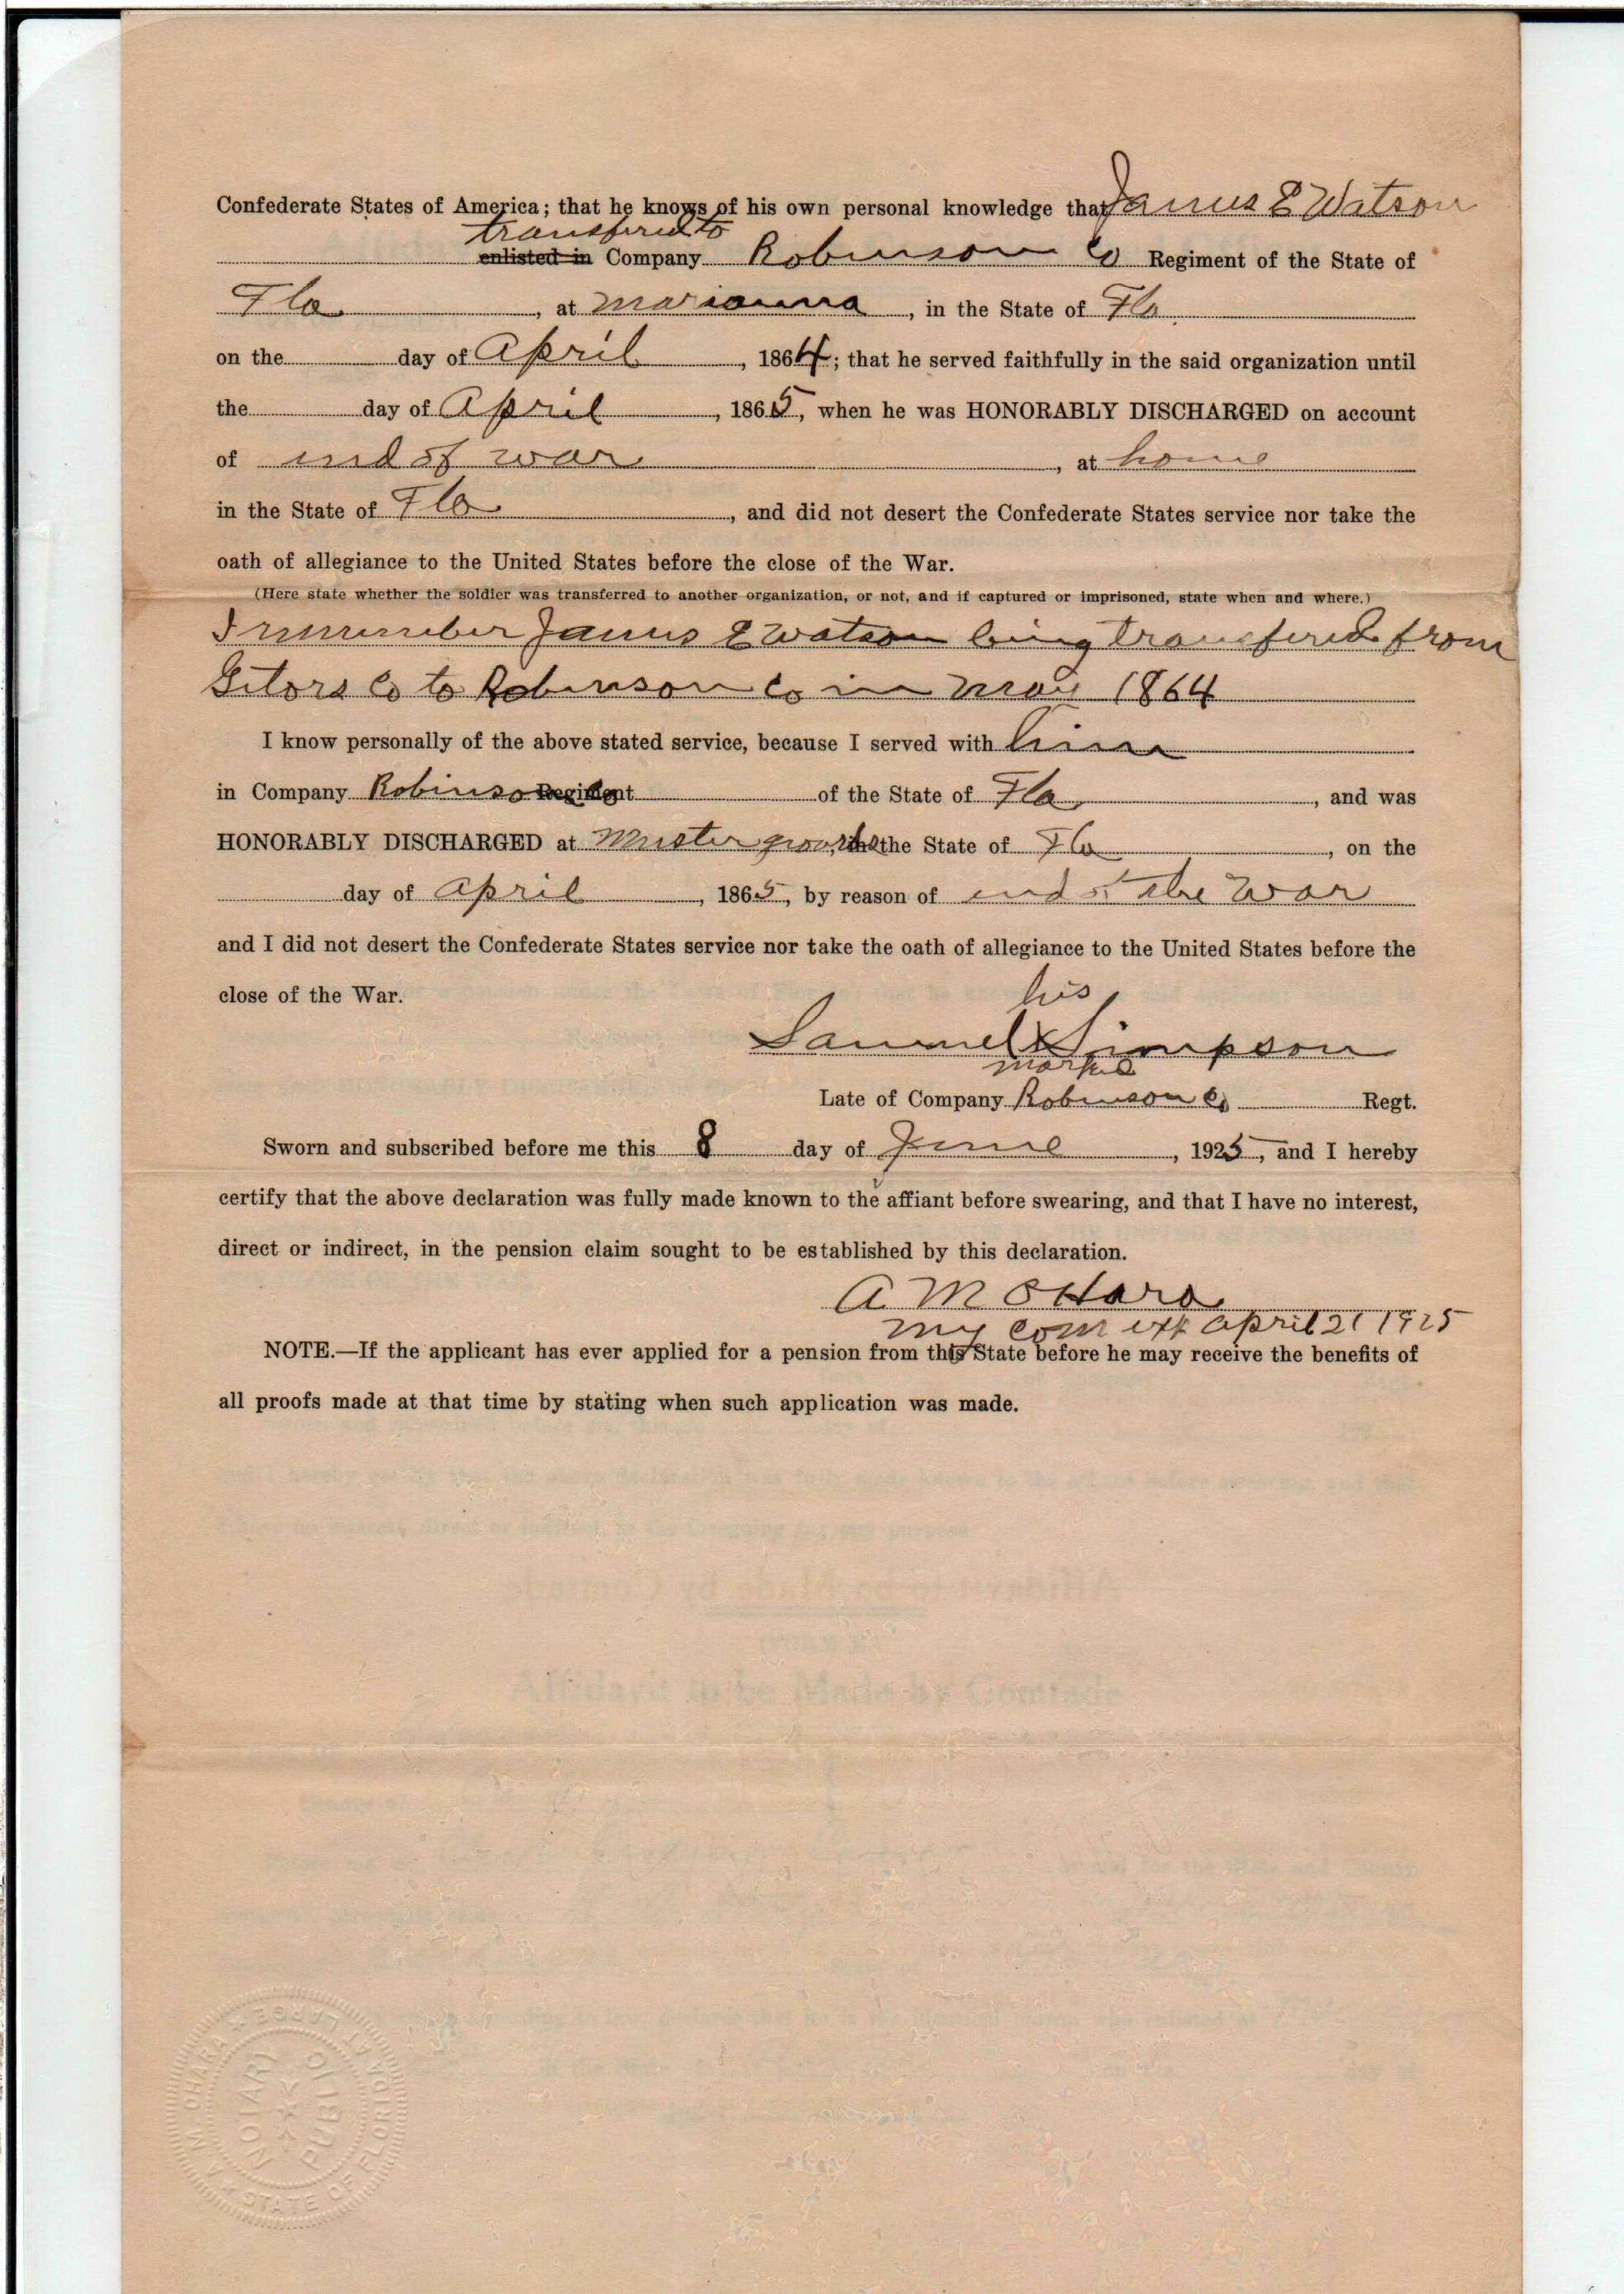 Confederate States of America; that he knows of his own personal knowledge that James E Watson
transfered to
enlisted in Company Robinson Co Regiment of the State of
Fla, at Marianna, in the State of Fla
on the day of April, 1864; that he served faithfully in the said organization until
the day of April, 1865, when he was HONORABLY DISCHARGED on account
of end of war, at home
in the State of Fla, and did not desert the Confederate States service nor take the
oath of allegiance to the United States before the close of the War.
(Here state whether the soldier was transferred to another organization, or not, and if captured or imprisoned, state when and where.)
I remember James E Watson being transfered from
Co to Robinson Co in May 1864
I know personally of the above stated service, because I served with him
in Company Robinson Co Regiment of the State of Fla, and was
HONORABLY DISCHARGED at Muster grounds, in the State of Fla, on the
day of April, 1865, by reason of end of the War
and I did not desert the Confederate States service nor take the oath of allegiance to the United States before the
close of the War.
his
Samuel X Simpson
mark
Late of Company Robinson Co Regt.
Sworn and subscribed before me this 8 day of June, 1925, and I hereby
certify that the above declaration was fully made known to the affiant before swearing, and that I have no interest,
direct or indirect, in the pension claim sought to be established by this declaration.
A M OHara
my com ex April 21 1925
NOTE.—If the applicant has ever applied for a pension from this State before he may receive the benefits of
all proofs made at that time by stating when such application was made.
Affidavit to be Made by Comrade
A. M. OHARA ★ STATE OF FLORIDA AT LARGE ★
NOTARY PUBLIC